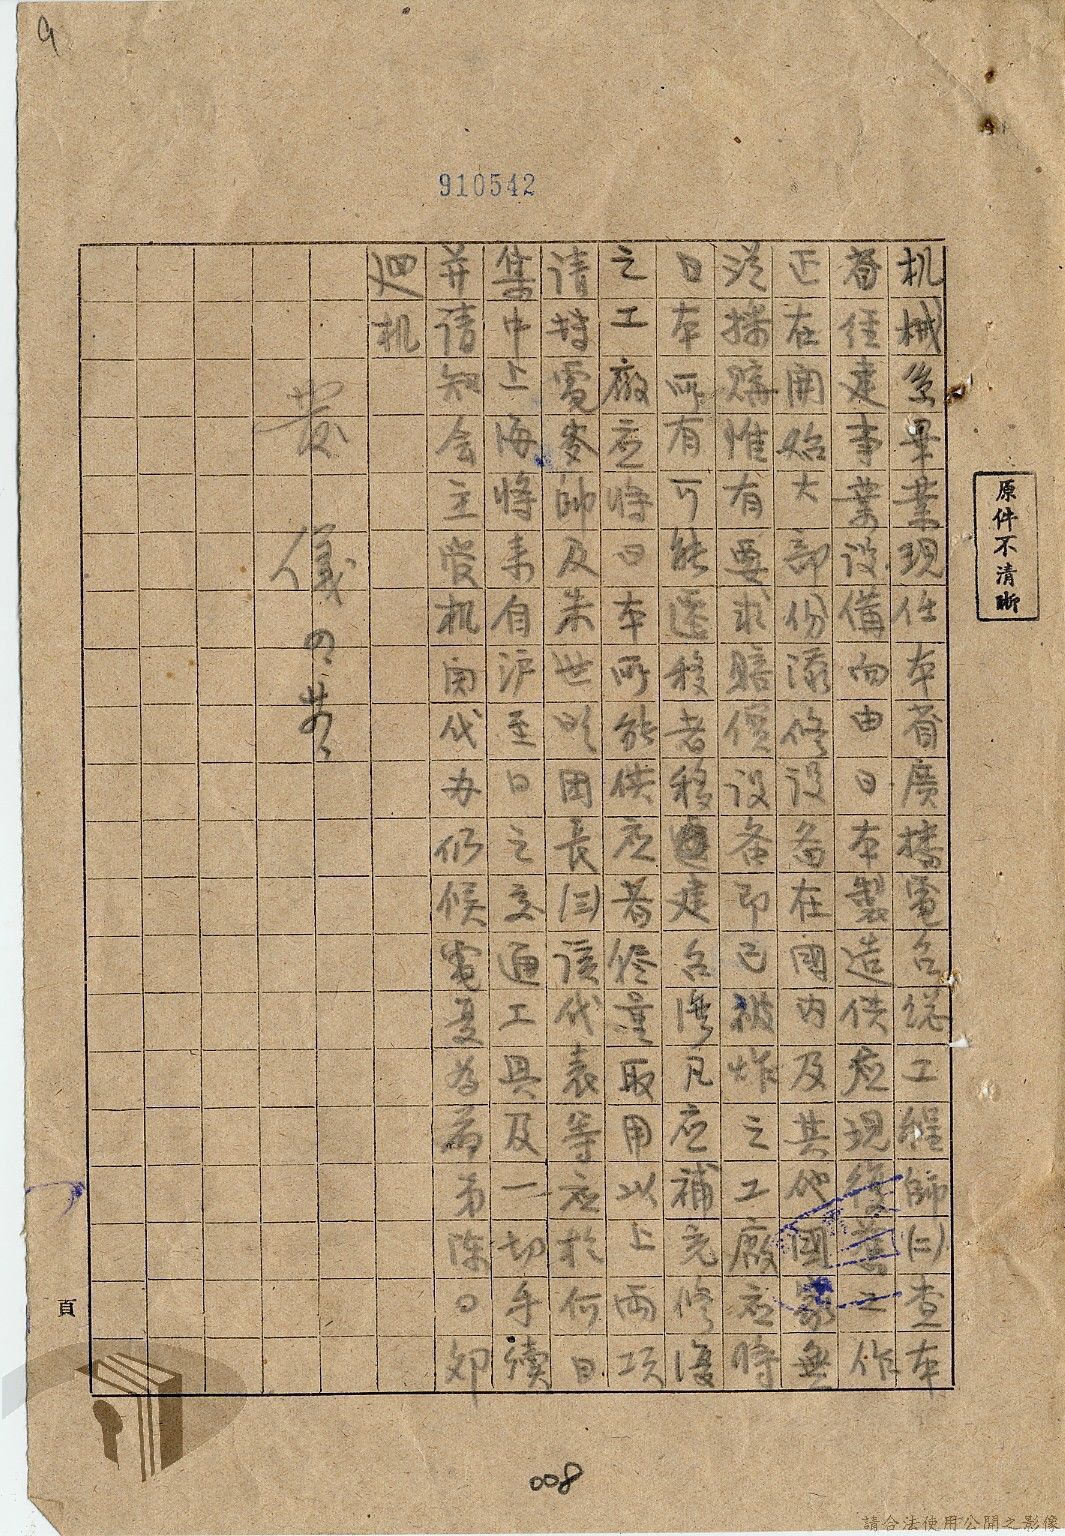 910542
机械系畢業現任本省廣播電台総工程師(二)查本
省經建事業設備向由日本製造供應現復舊工作
正在開始大部份添修設备在國内及其他國家無
從採購惟有要求賠償设备即已被炸之工廠应将
日本所有可能遷移者移建台湾凡应補充修復
之工廠应将日本所能供应者終量取用以上兩项
请特電麥帥及朱世明团長(三)该代表等应於何日
集中上海将来自沪至日之交通工具及一切手續
并请知会主管机関代办仍候電复为荷弟陈〇卯
廻机
黄 儀
原件不清晰
頁
008
請合法使用公開之影像